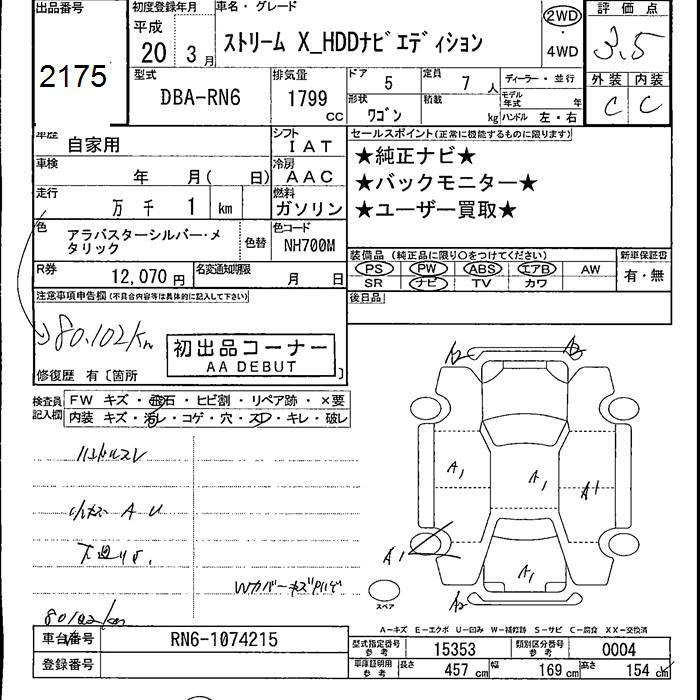 出品番号
2175
初度登録年月
平成
20年 3月
車名・グレード
ストリーム X_HDDナビエディション
2WD
・
4WD
評価点
3.5
外装 内装
C C
型式
DBA-RN6
排気量
1799 CC
ドア 5
定員 7人
形状 ワゴン
積載 kg
ディーラー・並行
モデル年式 年
ハンドル 左・右
車歴 自家用
シフト
IAT
車検 年 月( 日)
冷房
AAC
走行 万千 1 km
燃料
ガソリン
色 アラバスターシルバー・メタリック
色替
色コード
NH700M
R券 12,070円
名変通知期限 月 日
セールスポイント(正常に機能するものに限ります)
★純正ナビ★
★バックモニター★
★ユーザー買取★
装備品(純正品に限り○をつけてください)
PS PW ABS エアB AW
SR ナビ TV カワ
新車保証書
有・無
後日品
注意事項申告欄(不具合内容等は具体的に記入して下さい)
80,102km
初出品コーナー
AA DEBUT
修復歴 有〔箇所 〕
検査員記入欄
FW キズ・飛石・ヒビ割・リペア跡・×要
内装 キズ・汚レ・コゲ・穴・スレ・キレ・破レ
ハンドルスレ
小キズ A U
下廻りサビ
Wカバーキズ
80102km
A2
A1
A1
A1
A1
A1
A2
スペア
A―キズ E―エクボ U―凹み W―補修跡 S―サビ C―腐食 XX―交換済
車台番号 RN6-1074215
登録番号
型式指定番号参考 15353
類別区分番号参考 0004
車庫証明用参考
長さ 457 cm
幅 169 cm
高さ 154 cm